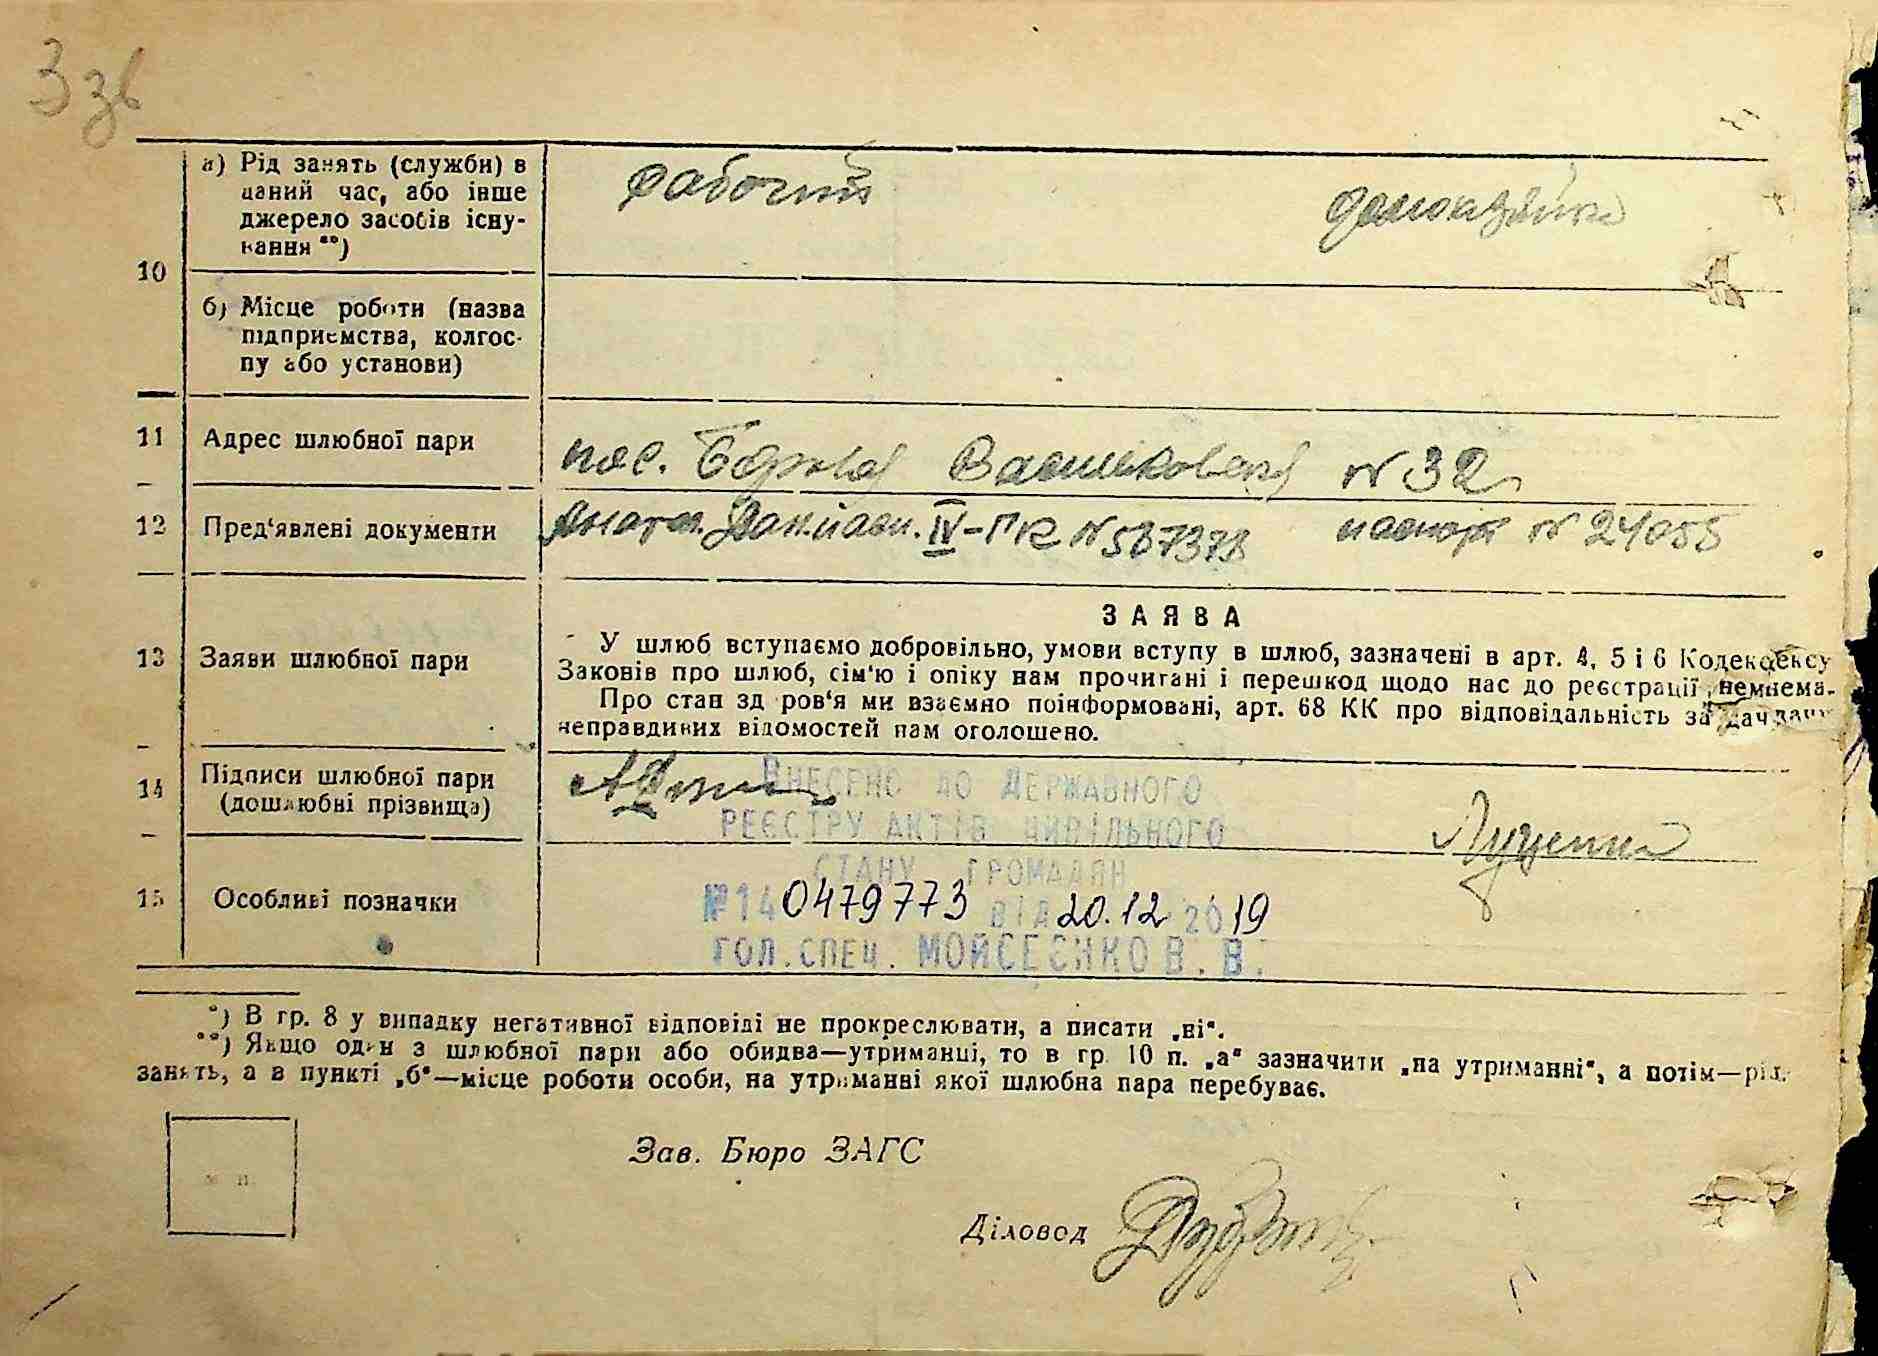 3 зв
а) Рід занять (служби) в
даний час, або інше
джерело засобів існу-
вання **)
рабочий
домохазяйка
10
б) Місце роботи (назва
підприємства, колгос-
пу або установи)
11 Адрес шлюбної пари
пос. Васильковская № 32
12 Пред'явлені документи
IV-ПК № 567373 паспорт № 24055
ЗАЯВА
13 Заяви шлюбної пари
У шлюб вступаємо добровільно, умови вступу в шлюб, зазначені в арт. 4, 5 і 6 Кодексу
Законів про шлюб, сім'ю і опіку нам прочитані і перешкод щодо нас до реєстрації нема.
Про стан здоров'я ми взаємно поінформовані, арт. 68 КК про відповідальність за дачу
неправдивих відомостей нам оголошено.
14 Підписи шлюбної пари
(дошлюбні прізвища)
Луценко
ВНЕСЕНО ДО ДЕРЖАВНОГО
РЕЄСТРУ АКТІВ ЦИВІЛЬНОГО
СТАНУ ГРОМАДЯН
15 Особливі позначки
№140479773 від 20.12 2019
ГОЛ.СПЕЦ. МОЙСЕЄНКО В.В.
*) В гр. 8 у випадку негативної відповіді не прокреслювати, а писати „ні".
**) Якщо один з шлюбної пари або обидва—утриманці, то в гр. 10 п. „а" зазначити „на утриманні", а потім—рід
занять, а в пункті „б"—місце роботи особи, на утриманні якої шлюбна пара перебуває.
М П.
Зав. Бюро ЗАГС
Діловод